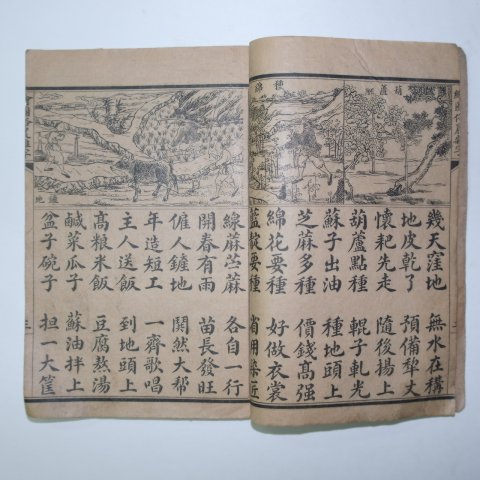 葫蘆
種綿
幾天窪地 無水在構
地皮乾了 預備犁丈
懷耙先走 隨後揚上
葫蘆點種 輥子軋光
蘇子出油 種地頭上
芝麻多種 價錢高强
綿花要種 好做衣裳
藍靛要種 省用染匠
鏟地
線蔴苎蔴 各自一行
開春有雨 苗長發旺
僱人鏟地 鬨然大帮
年造短工 一齊歌唱
主人送飯 到地頭上
高粮米飯 豆腐熬湯
鹹菜瓜子 蘇油拌上
盆子碗子 担一大筐